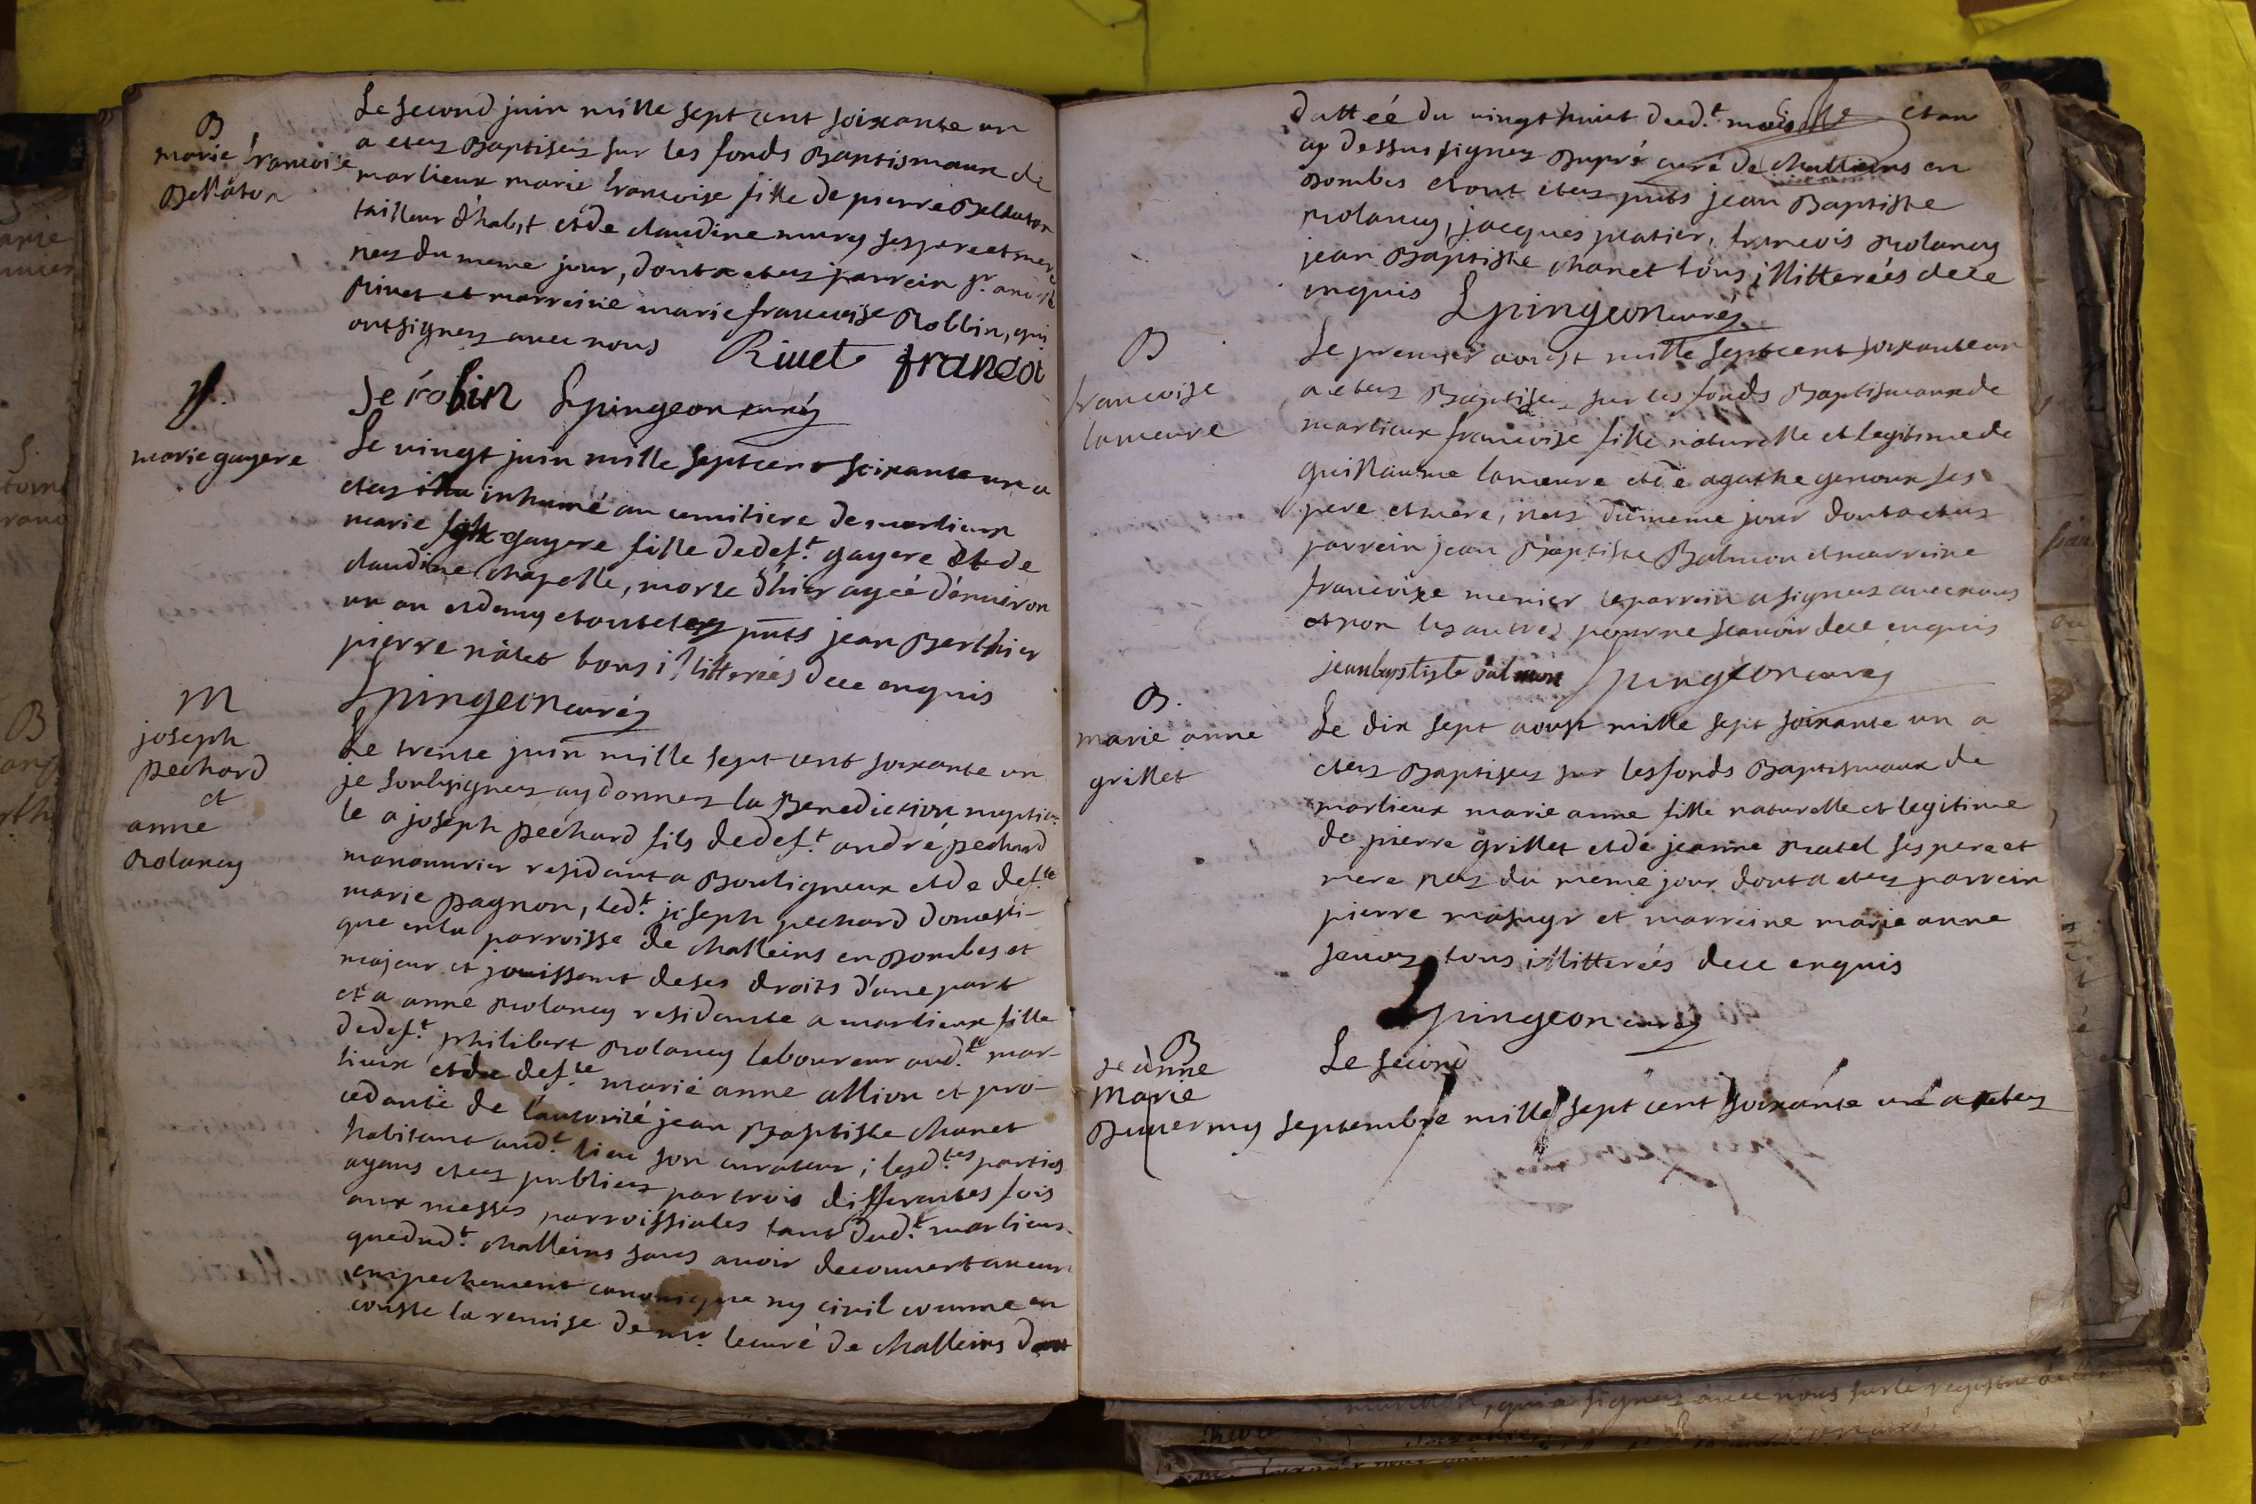 B
marie francoise
Bellaton
Le second juin mille sept cent soixante un
a etez Baptisez sur les fonds Baptismaux de
marlieux marie francoise fille de pierre Bellaton
tailleur d'habit et de claudine mury ses pere et mere
nez du meme jour, dont a etez parrein sr. andré
Rivet et marreine marie francoise Robbin, qui
ont signez avec nous Rivet francoi
se robin Spingeon curéz
marie gayere
Le vingt juin mille sept cent soixante un a
etez inhumé au cemitiere de marlieux
marie gayere fille de def.t gayere et de
claudine chapelle, morte d'hier agéé d'environ
un an et demy et ont etez pnts jean Berthier
pierre nâlet tous illitterées de ce enquis
Spingeon curéz
M
joseph
pechard
et
anne
Rolancy
Le trente juin mille sept cent soixante un
je soubsignez ay donnez la Benediction nuptia-
le a joseph pechard fils de def.t andré pechard
manouvrier residant a Bouligneux et de def.te
marie pagnon, led.t joseph pechard domesti-
que en la parroisse de challeins en Dombes et
majeur et jouissant de ses droits d'une part
et a anne Rolancy residente a marlieux fille
de def.t philibert Rolancy laboureur aud.t mar-
lieux et de def.te marie anne allion et pro-
cedante de l'autorité jean Baptiste chanet
habitant aud.t lieu son curateur; lesd.tes parties
ayans etez publiez par trois differantes fois
aux messes parroissiales tant dud.t marlieux
que dud.t challeins sans avoir decouvert aucun
empechement canonique ny civil comme en
conste la remise de mr. le curé de challeins dont
dattéé du vingt huict dud.t mois
cy dessus signez Dupré curé de challeins en
Dombes et ont etez pnts jean Baptiste
Rolancy, jacques platier, francois Rolancy
jean Baptiste chanet tous illitterées de ce
enquis Spingeon curéz
B
francoise
lameure
Le premier aoust mille sept cent soixante un
a etez Baptisez sur les fonds Baptismaux de
marlieux francoise fille naturelle et legitime de
guillaume lameure et de agathe genoux ses
pere et mere, nez du meme jour dont a etez
parrein jean Baptiste Balmon et marreine
francoise menier le parrein a signez avec nous
et non les autres pour ne scavoir de ce enquis
jean baptiste balmon Spingeon curéz
B.
marie anne
grillet
Le dix sept aoust mille sept soixante un a
etez Baptisez sur les fonds Baptismaux de
marlieux marie anne fille naturelle et legitime
de pierre grillet et de jeanne Ratel ses pere et
mere nez du meme jour dont a etez parrein
pierre masuyr et marreine marie anne
tous illitterées de ce enquis
Spingeon curéz
B
jeanne
Marie
Duvernny
Le second
septembre mille sept cent soixante une a etez